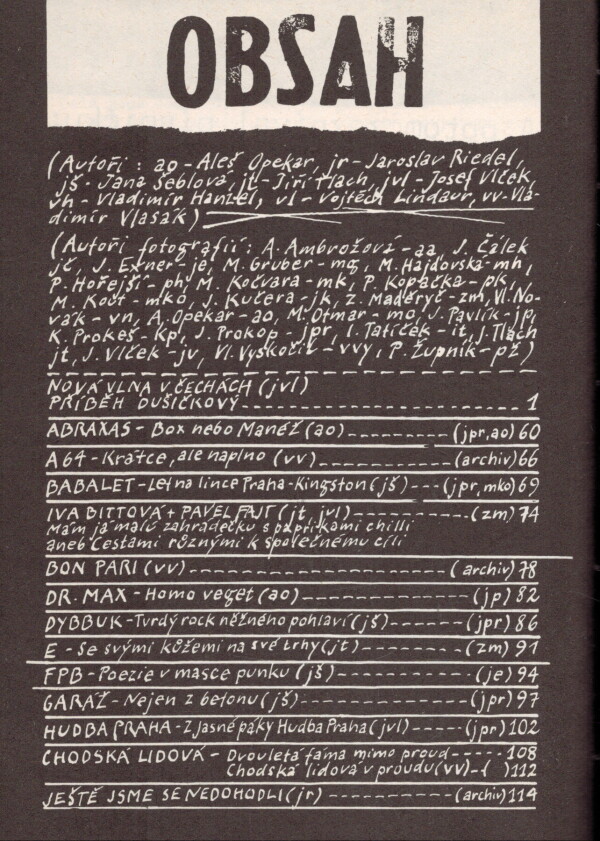 OBSAH
(Autoři : ao - Aleš Opekar, jr - Jaroslav Riedel,
jš - Jana Šeblová, jt - Jiří Tlach, jvl - Josef Vlček
vh - Vladimír Hanzel, vl - Vojtěch Lindaur, vv - Vla-
dimír Vlasák)
(Autoři fotografií : A. Ambrožová - aa, J. Čálek
jč, J. Exner - je, M. Gruber - mg, M. Hajdovská - mh,
P. Hořejší - ph, M. Kočvara - mk, P. Kopačka - pk,
M. Kout - mko, J. Kučera - jk, Z. Maděryč - zm, Vl. No-
vák - vn, A. Opekar - ao, M. Otmar - mo, J. Pavlík - jp,
K. Prokeš - kp, J. Prokop - jpr, I. Tatíček - it, J. Tlach
jt, J. Vlček - jv, Vl. Vyskočil - vvy, P. Župník - pž)
NOVÁ VLNA V ČECHÁCH (jvl)
PŘÍBĚH DUŠIČKOVÝ ---------- 1
ABRAXAS - Box nebo Manéž (ao) ---------- (jpr, ao) 60
A 64 - Krátce, ale naplno (vv) ---------- (archiv) 66
BABALET - Let na lince Praha - Kingston (jš) --- (jpr, mko) 69
IVA BITTOVÁ + PAVEL FAJT (jt, jvl) ---------- (zm) 74
Mám já malú zahrádečku s paprikami chilli
aneb Cestami různými k společnému cíli
BON PARI (vv) ---------- (archiv) 78
DR. MAX - Homo veget (ao) ---------- (jp) 82
DYBBUK - Tvrdý rock něžného pohlaví (jš) ------- (jpr) 86
E - Se svými kůžemi na své trhy (jt) -------- (zm) 91
FPB - Poezie v masce punku (jš) ---------- (je) 94
GARÁŽ - Nejen z betonu (jš) ---------- (jpr) 97
HUDBA PRAHA - Z jasné páky Hudba Praha (jvl) ---- (jpr) 102
CHODSKÁ LIDOVÁ - Dvouletá fáma mimo proud ----- 108
Chodská lidová v proudu (vv) - ( ) 112
JEŠTĚ JSME SE NEDOHODLI (jr) ---------- (archiv) 114